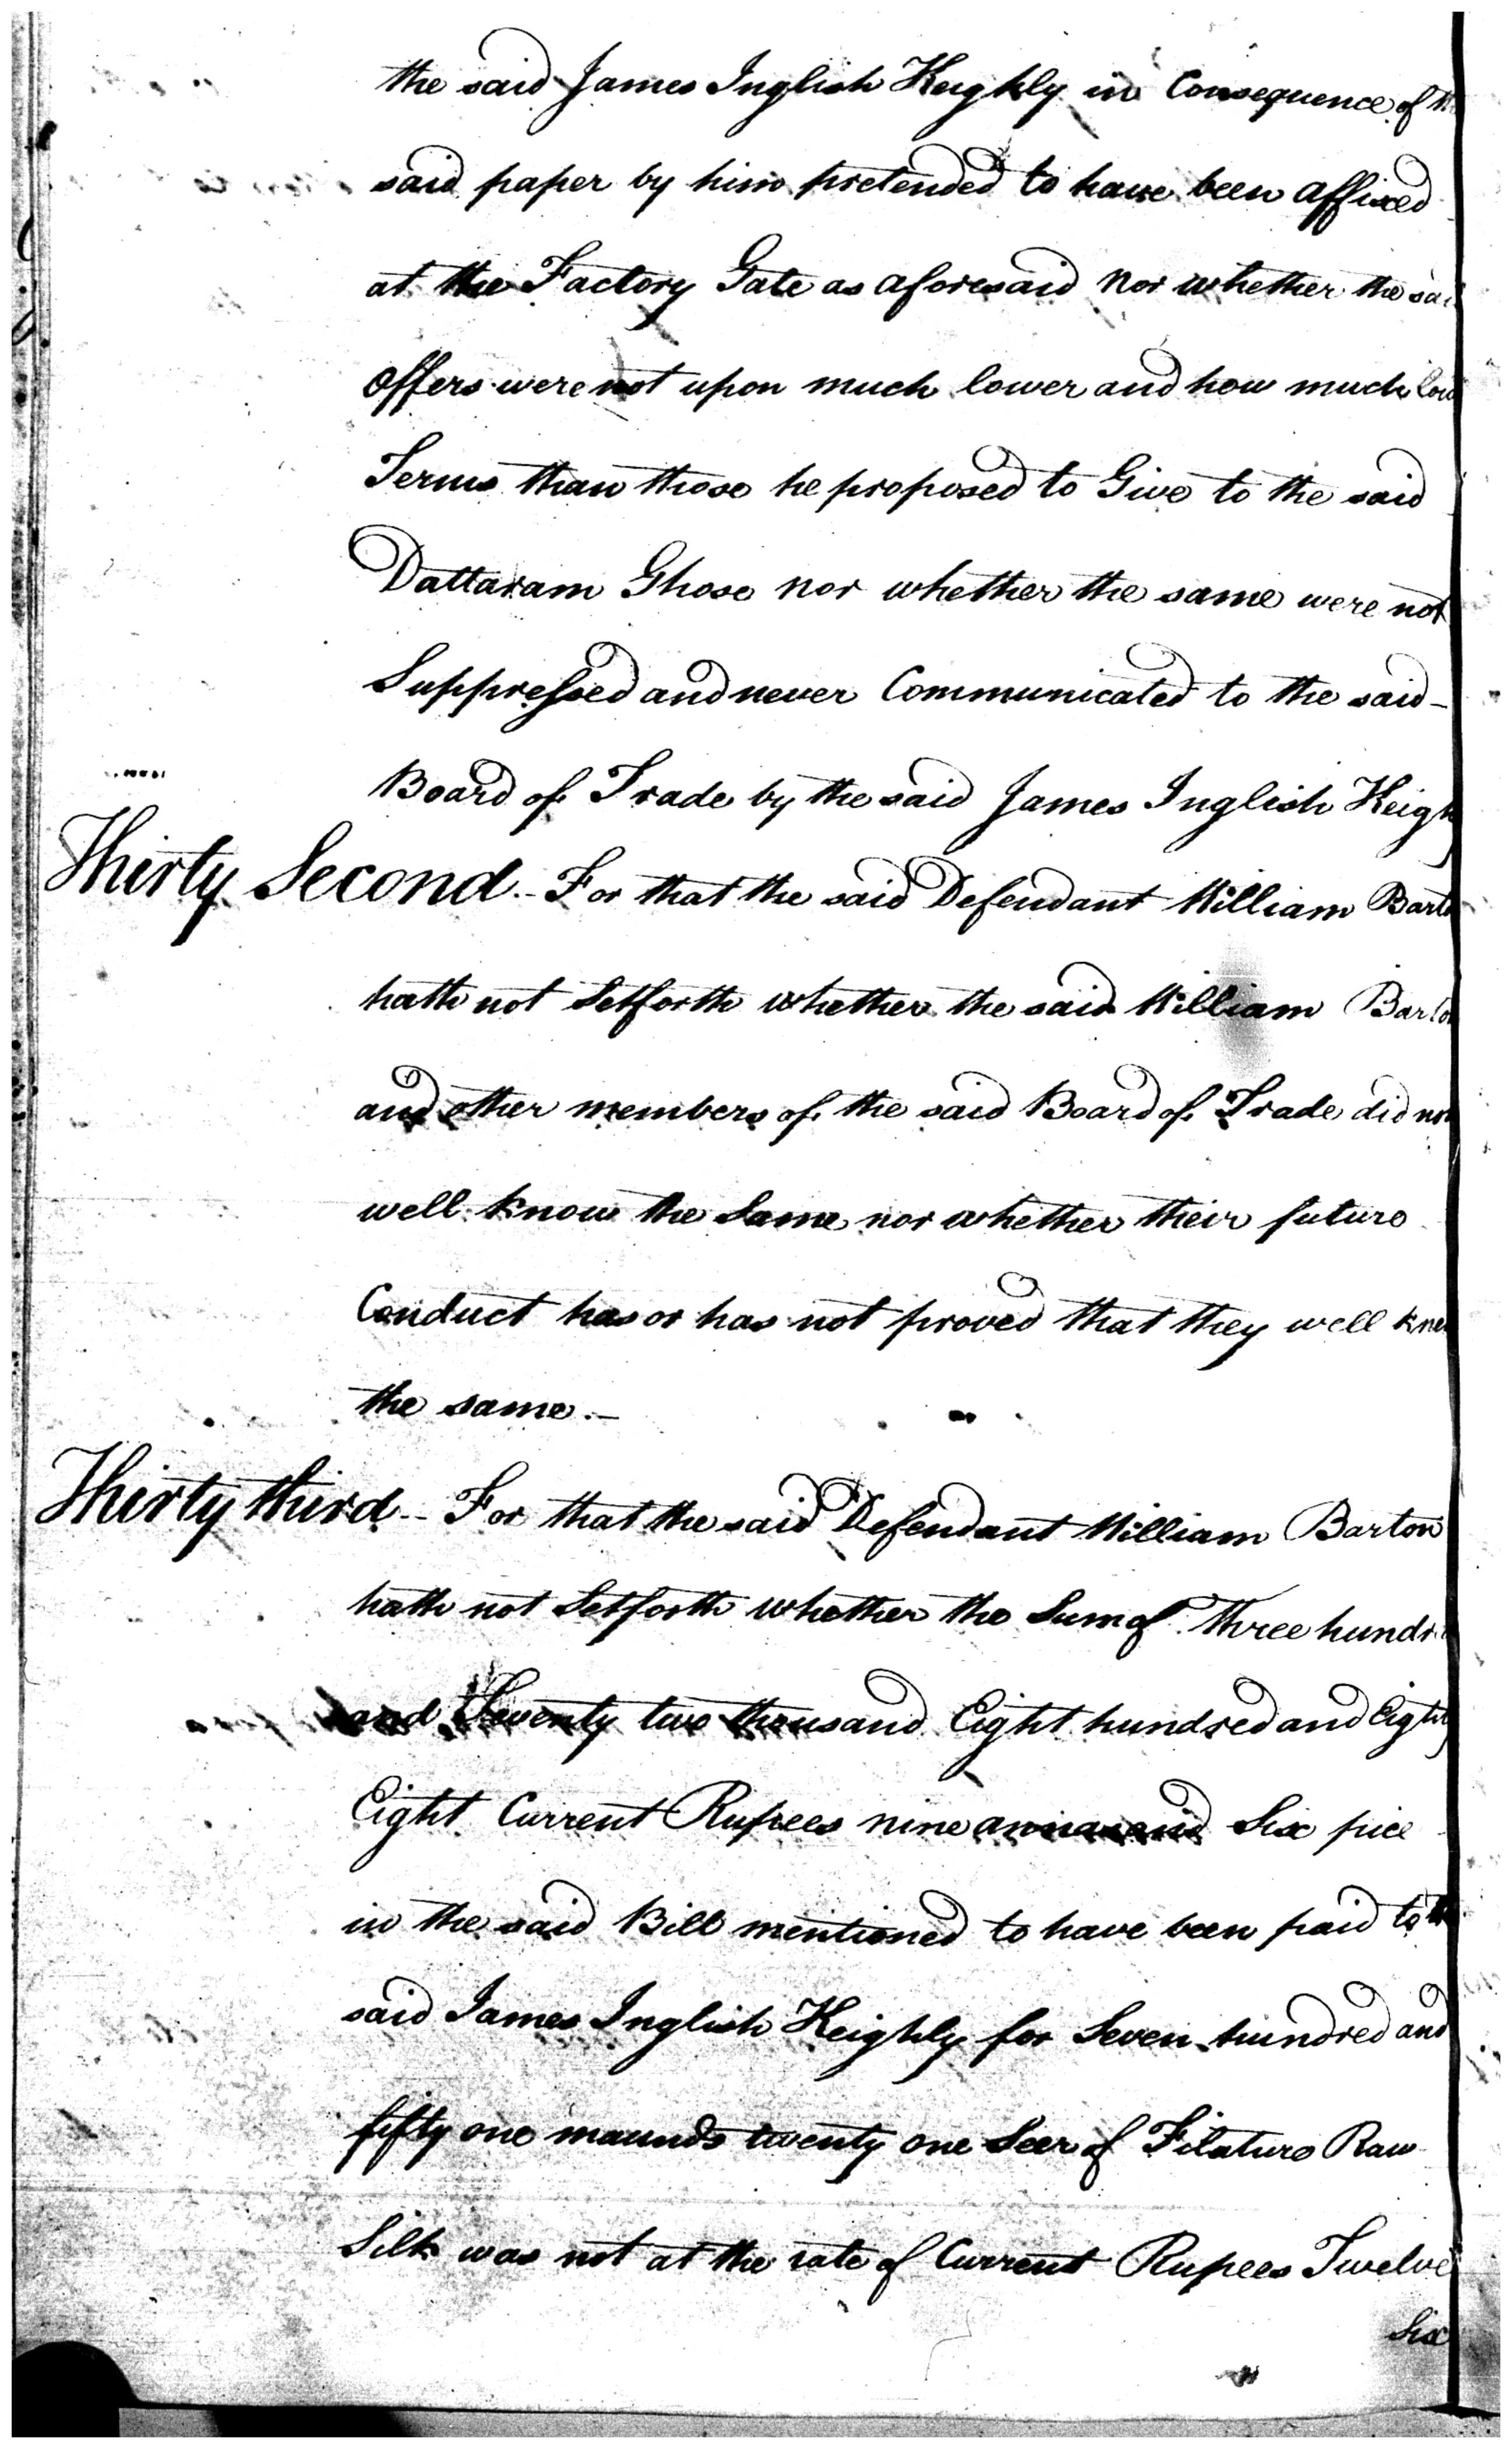 the said James Inglish Keighly in Consequence of
said paper by him pretended to have been affixed
at the Factory Gate as aforesaid nor whether the sai
Offers were not upon much lower and how much low
Terms than those he proposed to Give to the said
Dattaram Ghose nor whether the same were not
Suppressed and never Communicated to the said -
Board of Trade by the said James Inglish Keigh
Thirty Second - For that the said Defendant William Barto
hath not Setforth whether the said William Barton
and other members of the said Board of Trade did not
well know the Same nor whether their future
Conduct has or has not proved that they well knew
the same. -
Thirty third - For that the said Defendant William Barton
hath not Setforth whether the Sum of Three hundr
and Seventy two thousand Eight hundred and Eighty
Eight Current Rupees nine annas and Six pice
in the said Bill mentioned to have been paid to the
said James Inglish Keighly for Seven hundred and
fifty one maunds twenty one Seer of Filature Raw
Silk was not at the rate of Current Rupees Twelve
Six